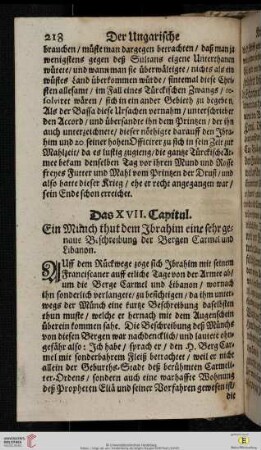 218 Der Ungarische
brauchen / müste man dargegen betrachten / daß man ja
wenigstens gegen deß Sultans eigene Unterthanen
wütete / und wann man sie überwältigte / nichts als ein
wüstes Land überkommen würde / sintemal diese Chri-
sten allesamt / im Fall eines Türckischen Zwangs / re-
solviret wären / sich in ein ander Gebieth zu begeben.
Als der Bassa diese Ursachen vernahm / unterschrieb er
den Accord / und übersandte ihn dem Printzen / der ihn
auch unterzeichnete / dieser nöthigte darauff den Ibra-
him und 20 seiner hohen Officirer zu sich in sein Zelt zur
Mahlzeit / da es lustig zugieng / die gantz Türckische Ar-
mee bekam denselben Tag vor ihren Mund und Rosse
freyes Futter und Mahl vom Printzen der Drusi / und
also hatte dieser Krieg / ehe er recht angegangen war /
sein Ende schon erreichet.
Das XVII. Capitul.
Ein Münch thut dem Ibrahim eine sehr ge-
naue Beschreibung der Bergen Carmel und
Libanon.
Auff dem Rückwege zoge sich Ibrahim mit seinem
Franciscaner auff etliche Tage von der Armee ab /
um die Berge Carmel und Libanon / wornach
ihn sonderlich verlangete / zu besichtigen / da ihm unter-
wegs der Münch eine kurtze Beschreibung desselben
thun muste / welche er hernach mit dem Augenschein
überein kommen sahe. Die Beschreibung deß Münchs
von diesen Bergen war nachdencklich / und lautete ohn-
gefähr also: Ich habe / sprach er / den H. Berg Car-
mel mit sonderbahrem Fleiß betrachtet / weil er nicht
allein der Geburths-Stadt deß berühmten Carmeli-
ter-Ordens / sondern auch eine warhaffte Wohnung
deß Propheten Eliä und seiner Vorfahren gewesen ist /
die